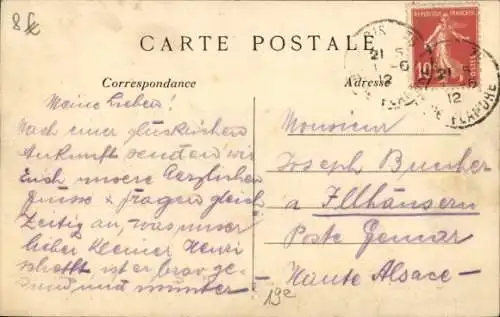 8f
CARTE POSTALE
Correspondance
Adresse
REPUBLIQUE FRANÇAISE
10
POSTES
PARIS
21
12
Meine Lieben!
Nach einer glücklichen
Ankunft senden wir
Euch unsere herzlichen
Grüsse & fragen gleich
Zeitig an, was unser
lieber kleiner Henri
schafft, ist er brav ge-
sund und munter
Monsieur
Joseph Bucher
a Illhäusern
Poste Gemar
- Haute Alsace -
19e